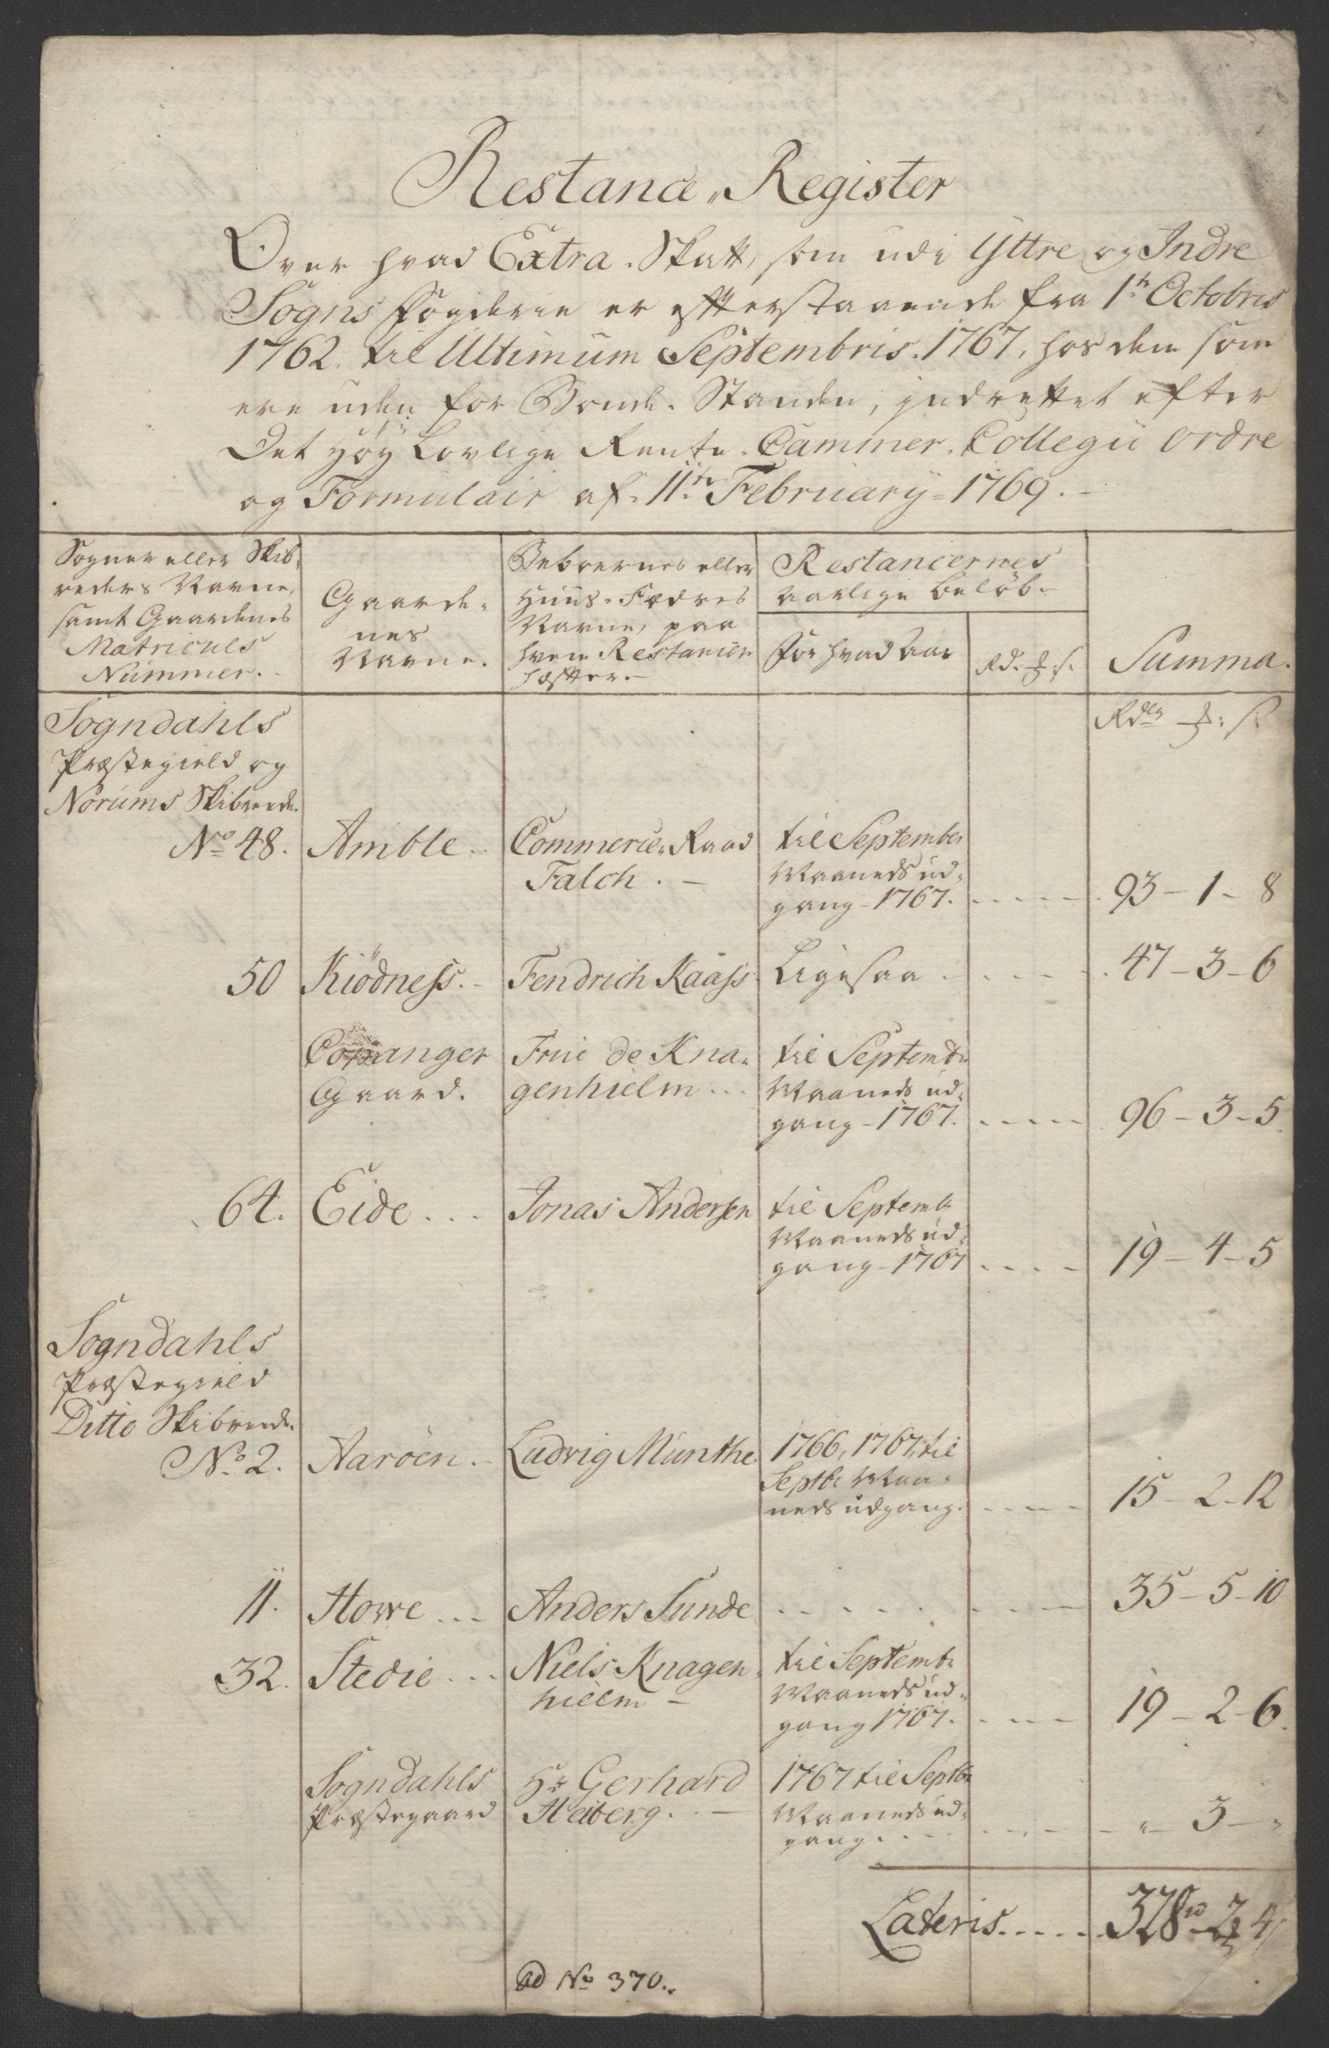 Restance „ Register
Over hvad Extra. Skatt, som udi Yttre og Indre
Sogns Fogderie er efterstaaende fra 1te Octobris
1762. til Ultimum Septembris. 1767, hos dem som
ere uden for Bonde. Standen, indrettet efter
Det Høy Lovlige Rente. Cammer. Collegii ordre
og Formulair af 11te February = 1769. –
Sogner eller Skib,
reders Navne,
samt Gaardenes
Matriculs
Nummer. –
Gaarde,
nes
Navne.
Beboernes eller
Huus. Fædres
Navne, paa
hvem Restancen
hæfter. –
Restancernes
aarlige Beløb. –
For hvad Aar
Rd. ₻ s.
Summa.
Sogndahls
Rdlr ₻: s.
Præstegield og
Norums Skibrede.
No 48. Amble. – Commerce, Raad til September
Falch. – Maaneds ud,
gang – 1767. . – – – . 93 – 1 – 8
50 Kiödness. – Fendrich Kaass Ligesaa . – – – . 47 – 3 – 6
Caupanger Frue de Kna, til Septembr
Gaard. genhielm ... Maaneds ud,
gang – 1767. . – – – 96 – 3 – 5.
64. Eide ... Jonas Andersen til Septemb
Maaneds ud,
gang – 1767 . – – – 19 – 4 – 5
Sogndahls
Præstegield
Ditto Skibrede.
No 2. Aaröen. – Ludvig Munthe 1766, 1767, til
Septbr Maa,
neds udgang. . – – – 15 – 2 – 12
11. Howe ... Anders Sunde . . . . . . – – – 35 – 5 – 10
32. Stedie ... Niels Knagen, til Septembr
hielm – Maaneds ud,
gang 1767. . – – – 19 – 2 – 6.
Sogndahls Hr Gerhard 1767 til Septbr
Præstegaard Heiberg. . – Maaneds ud,
gang. . . . – – – „ – 3 – „
Lateris. . . . . 328 rd 2 ₻ 4 s
ad No 370.